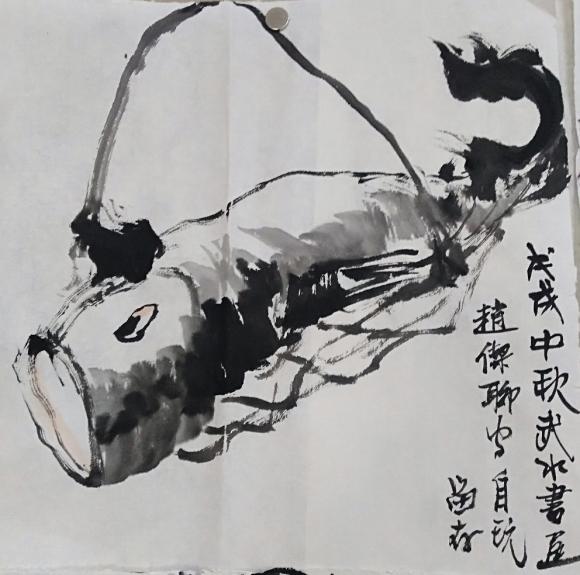 戊戌中秋武水書屋
趙傑聊寫自玩
留存